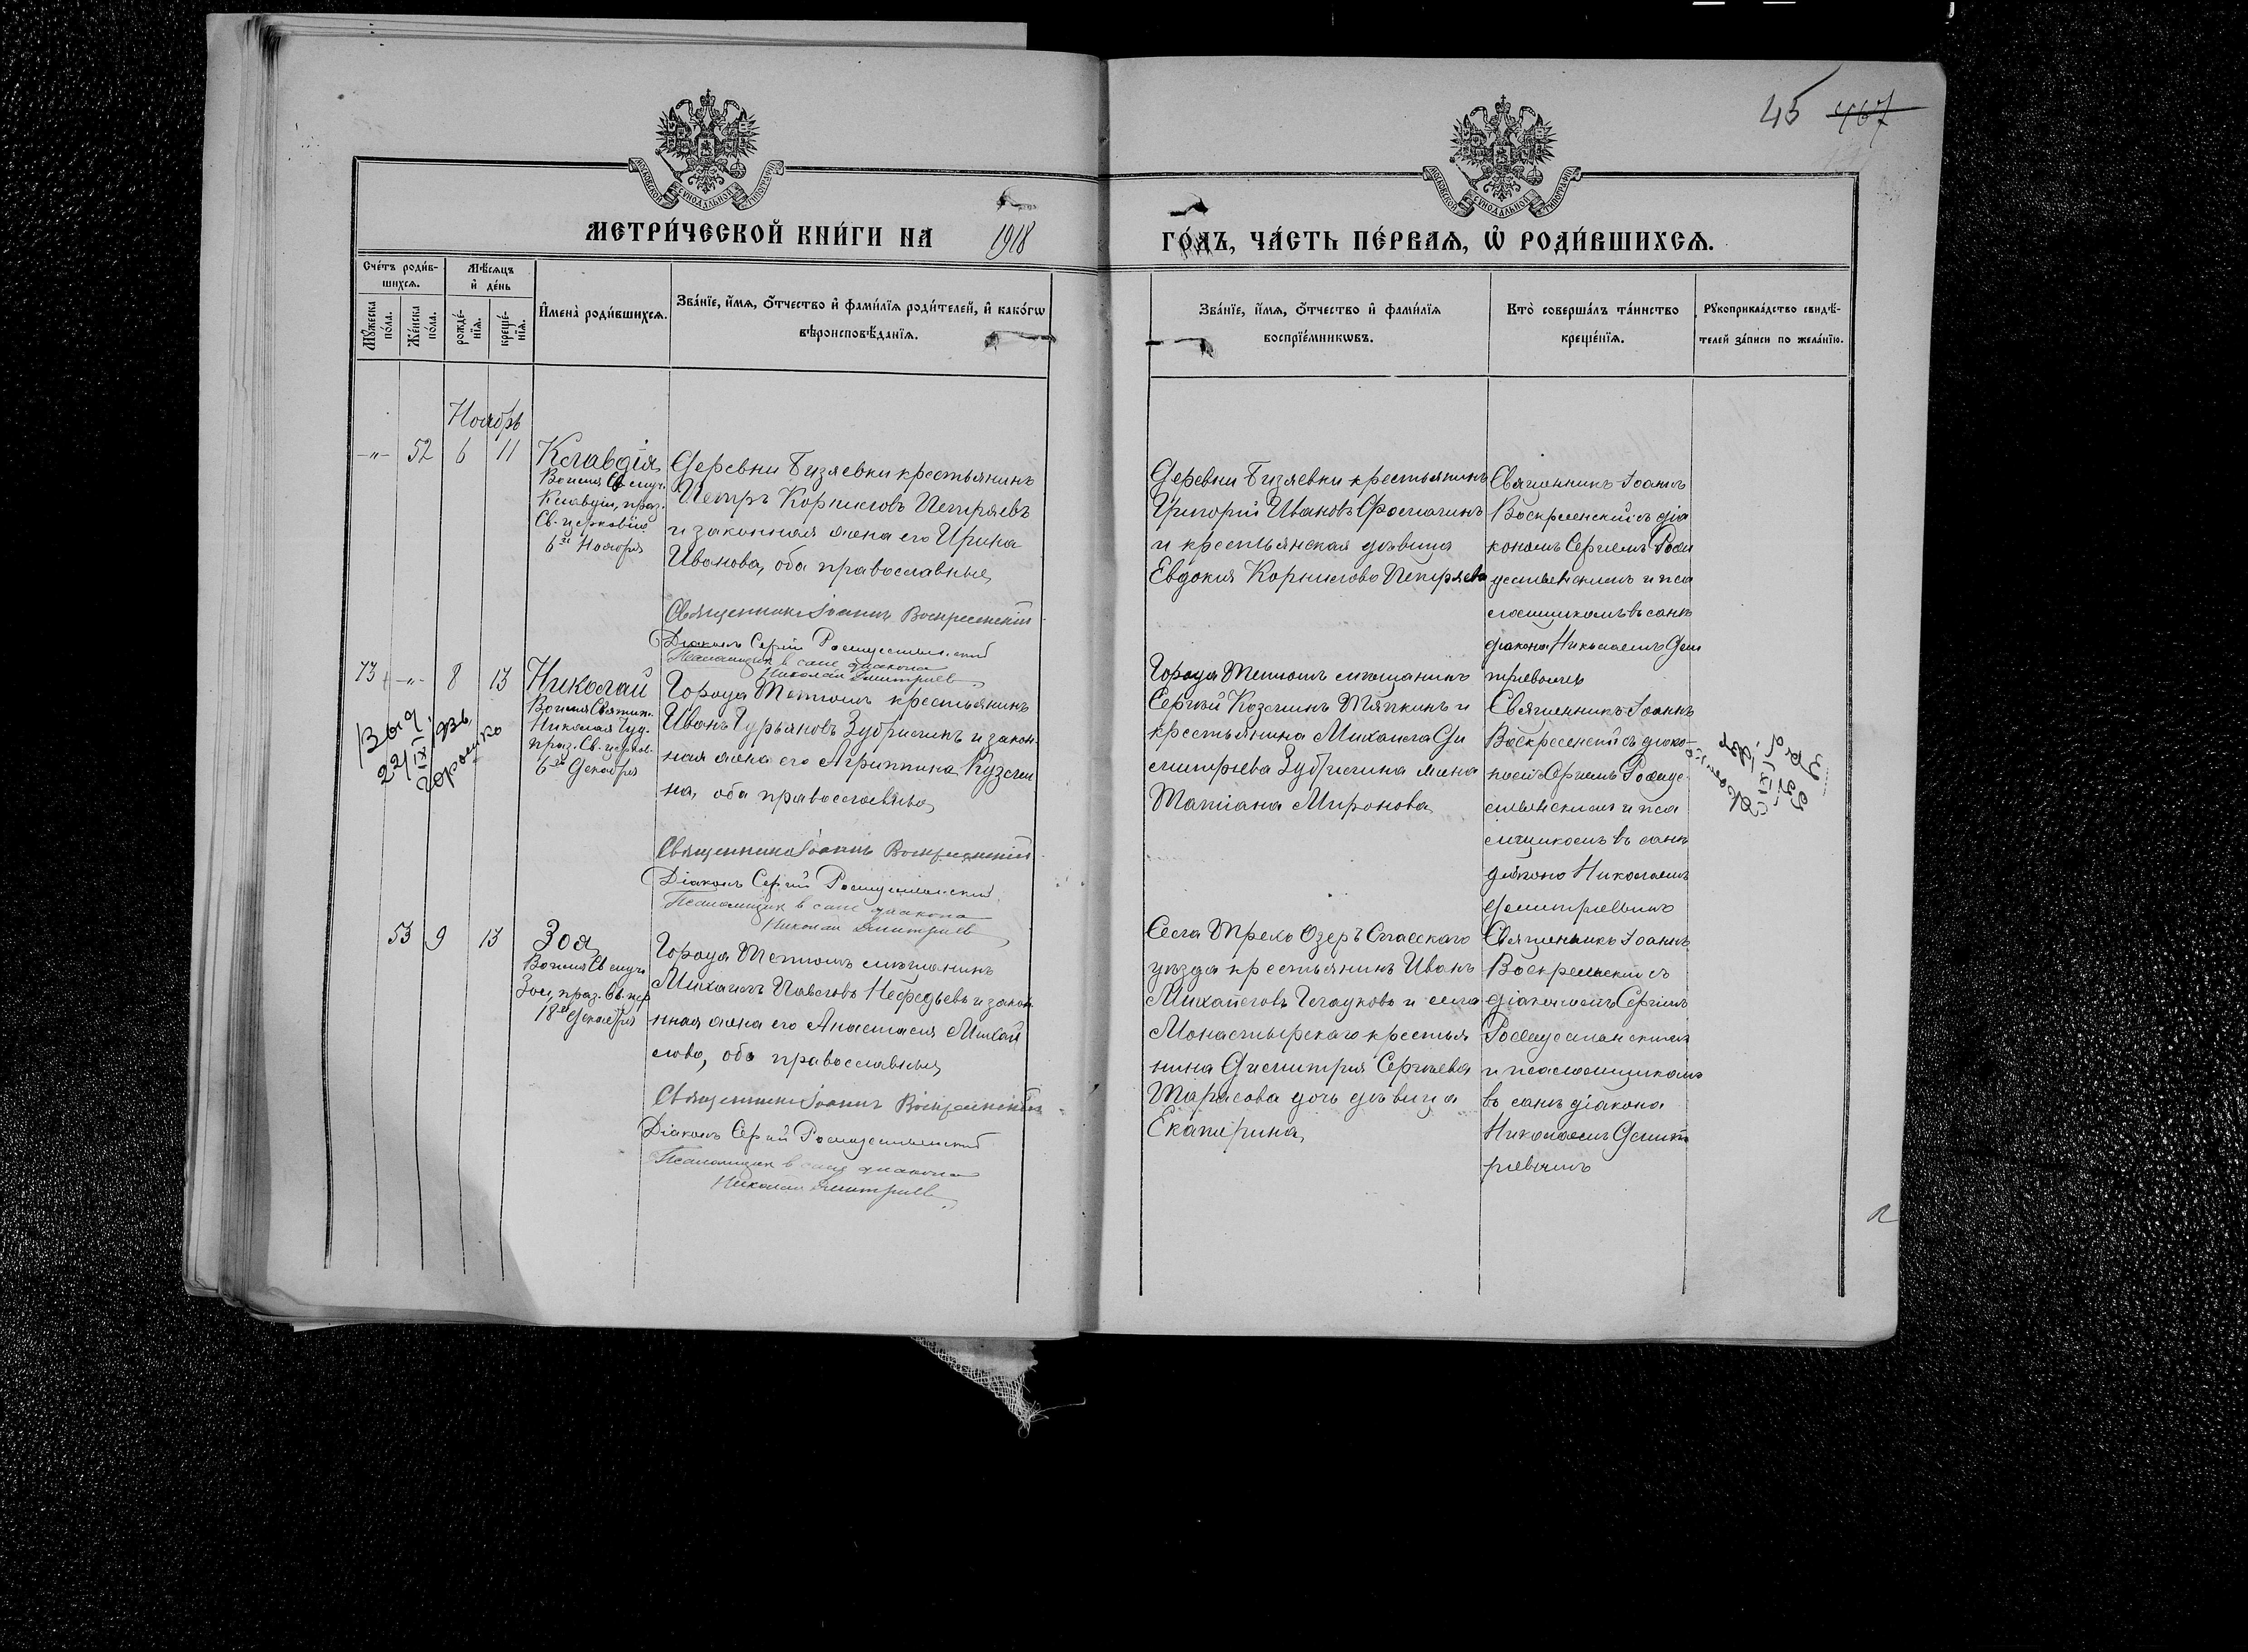 45 467
МОСКОВСКОЙ СѴНОДАЛЬНОЙ ТИПОГРАФІИ
МОСКОВСКОЙ СѴНОДАЛЬНОЙ ТИПОГРАФІИ
МЕТРИ́ЧЕСКОЙ КНИ́ГИ НА 1918 ГО́ДЪ, ЧА́СТЬ ПЕ́РВАЯ, Ѡ҆ РОДИ́ВШИХСЯ.
Сче́тъ роди́в-
шихся.
Мѣ́сяцъ
и҆ де́нь
Мꙋ́жеска
по́ла.
Же́нска
по́ла.
рожде́-
нїя.
креще́-
нїя.
И҆мена̀ роди́вшихся.
Зва́нїе, и҆́мя, ѻ҆́тчество и҆ фами́лїя роди́телей, и҆ како́гѡ
вѣроисповѣ́данїя.
Зва́нїе, и҆́мя, ѻ҆́тчество и҆ фами́лїя
воспрїе́мникѡвъ.
Кто̀ соверша́лъ та́инство
креще́нїя.
Рꙋкоприкла́дство свидѣ́-
телей за́писи по жела́нїю.
Ноябрь
-"- 52 6 11
Клавдія
Во имя Св. муч.
Клавдіи, праз.
Св. церковію
6го Ноября
Деревни Бизяевки крестьянинъ
Петръ Корниловъ Петряевъ
и законная жена его Ирина
Иванова, оба православные
Священникъ Іоаннъ Воскресенскій
Діаконъ Сергій Рождественскій
Псаломщик в сане диакона
Николай Дмитриев
Деревни Бизяевки крестьянинъ
Григорій Ивановъ Фомагинъ
и крестьянская дѣвица
Евдокия Корнилова Петряева
Священникъ Іоаннъ
Воскресенскій съ діа
кономъ Сергіемъ Рож
дественскимъ и пса
ломщикомъ въ санѣ
діакона Николаемъ Дми
тріевымъ
73 -"- 8 13
Николай
Во имя Святит.
Николая Чуд.
праз. Св. церков.
6го Декабря
Города Тетюшъ крестьянинъ
Иванъ Гурьяновъ Зубрилинъ и закон
ная жена его Агриппина Кузьми
на, оба православные
Священникъ Іоаннъ Воскресенскій
Діаконъ Сергій Рождественскій
Псаломщик в сане диакона
Николай Дмитриев
Города Тетюшъ мѣщанинъ
Сергѣй Козминъ Тяпкинъ и
крестьянина Михаила Ди
митріева Зубрилина жена
Татіана Миронова
Священникъ Іоаннъ
Воскресенскій съ діако-
номъ Сергіемъ Рождес-
твенскимъ и пса
ломщикомъ въ санѣ
діакона Николаемъ
Дмитріевымъ
53 9 13
Зоя
Во имя Св. муч.
Зои, праз. Св. цер
18го Декабря
Города Тетюшъ мѣщанинъ
Михаилъ Павловъ Нефедьевъ и закон
нная жена его Анастасія Михай
лова, оба православные
Священникъ Іоаннъ Воскресенскій
Діаконъ Сергій Рождественскій
Псаломщик в сане диакона
Николай Дмитриев
Села Трехъ Озеръ Спасскаго
уѣзда крестьянинъ Иванъ
Михайловъ и села
Монастырскаго крестья
нина Димитрія Сергѣева
Тарасова дочь дѣвица
Екатерина
Священникъ Іоаннъ
Воскресенскій съ
діакономъ Сергіемъ
Рождественскимъ
и псаломщикомъ
въ санѣ діакона
Николаемъ Дмит
ріевымъ